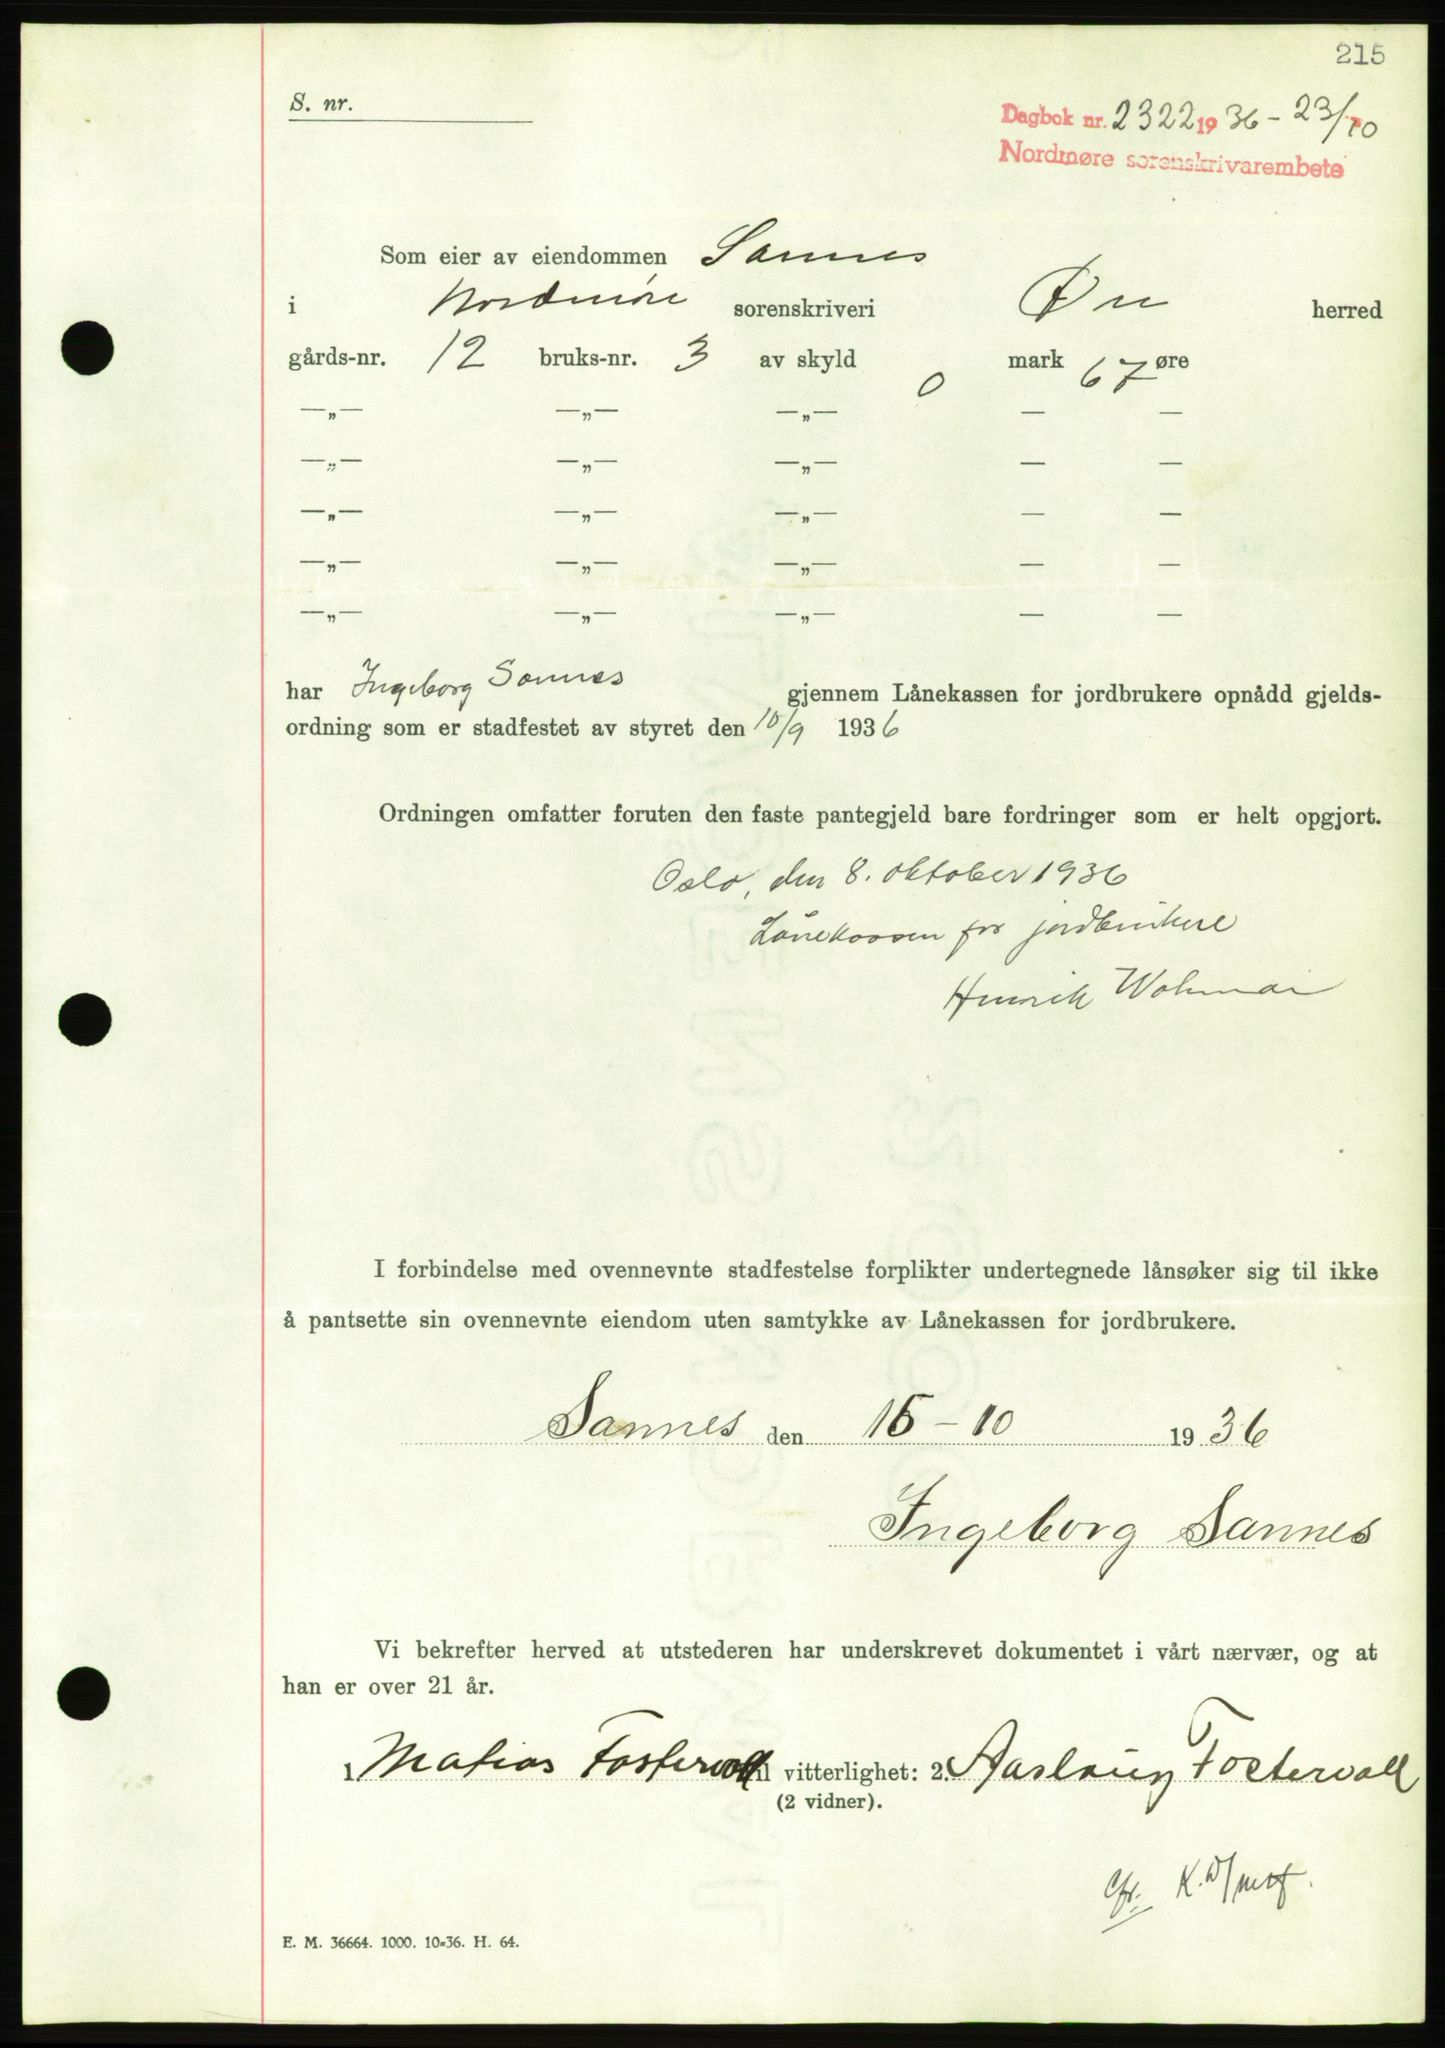 215
S. nr.
Dagbok nr. 2322 1936 - 23/10
Nordmøre sorenskrivarembete
Som eier av eiendommen Sannes
i Nordmøre sorenskriveri Øre herred
gårds-nr. 12 bruks-nr. 3 av skyld 0 mark 67 øre
—„— —„— —„— — —
—„— —„— —„— — —
—„— —„— —„— — —
—„— —„— —„— — —
—„— —„— —„— — —
har Ingeborg Sannes gjennem Lånekassen for jordbrukere opnådd gjelds-
ordning som er stadfestet av styret den 10/9 1936
Ordningen omfatter foruten den faste pantegjeld bare fordringer som er helt opgjort.
Oslo, den 8. oktober 1936
Lånekassen for jordbrukere
Henrik
I forbindelse med ovennevnte stadfestelse forplikter undertegnede lånsøker sig til ikke
å pantsette sin ovennevnte eiendom uten samtykke av Lånekassen for jordbrukere.
Sannes den 15-10 1936
Ingeborg Sannes
Vi bekrefter herved at utstederen har underskrevet dokumentet i vårt nærvær, og at
han er over 21 år.
1 Matias Fostervoll til vitterlighet: 2. Aaslaug Fostervoll
(2 vidner).
E. M. 36664. 1000. 10-36. H. 64.